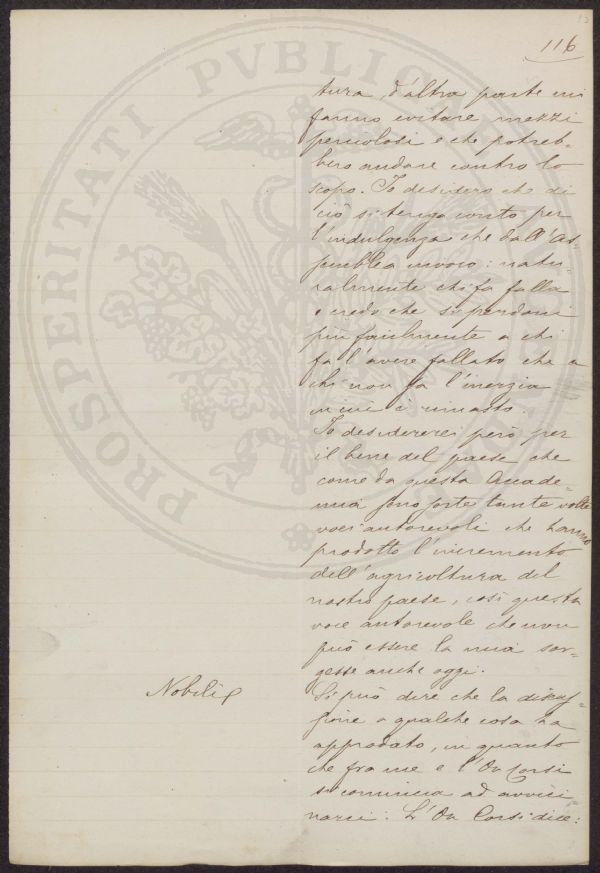 116
tura, d'altra parte mi
fanno evitare mezzi
pericolosi e che potreb-
bero andare contro lo
scopo. Io desidero che di
ciò si tenga conto per
l'indulgenza che dall'As-
semblea invoco: natu-
ralmente chi fa falla
e credo che si perdoni
più facilmente a chi
fa l'avere fallato che a
chi non fa l'inerzia
in cui è rimasto.
Io desidererei però per
il bene del paese che
come da questa Accade-
mia sono sorte tante volte
voci autorevoli che hanno
prodotto l'incremento
dell'agricoltura del
nostro paese, così questa
voce autorevole che non
può essere la mia sor-
gesse anche oggi.
Nobili
Si può dire che la discus-
sione a qualche cosa ha
approdato, in quanto
che fra me e l'On Corsi
si comincia ad avvici-
narci. L'On Corsi dice:
PROSPERITATI PVBLICAE